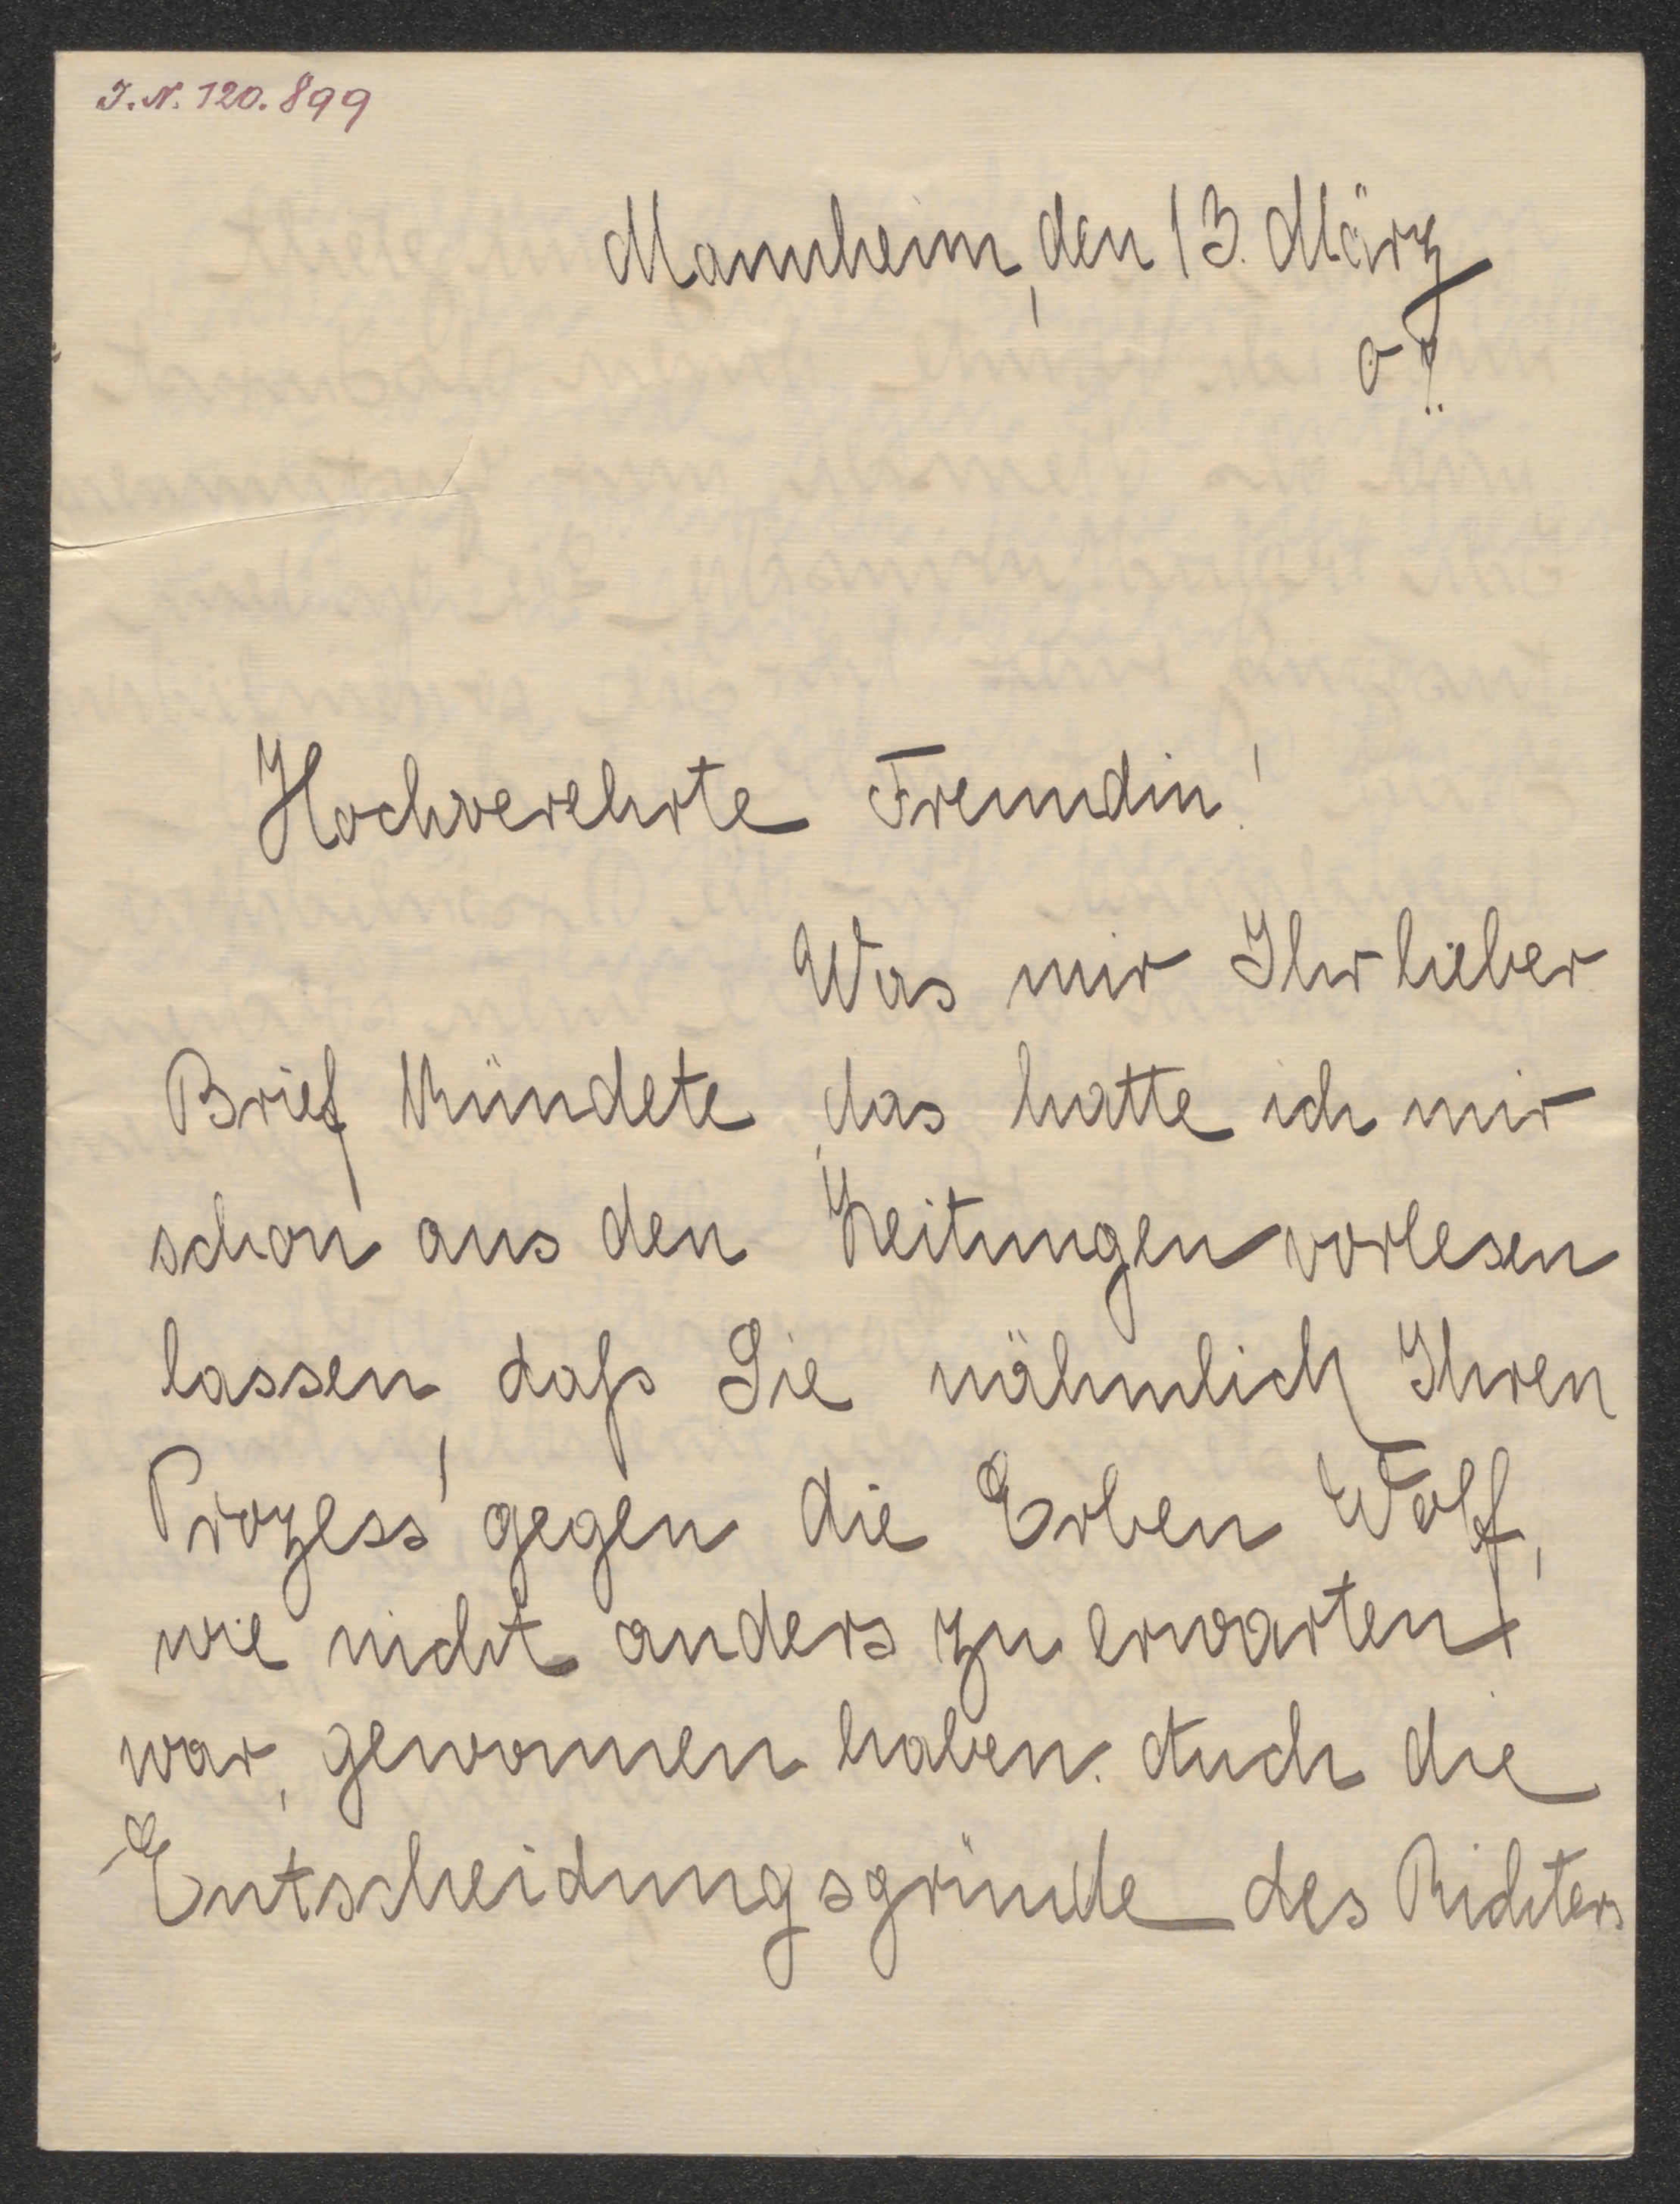 J.N. 120.899
Mannheim, den 13. März
Hochverehrte Freundin!
Was mir Ihr lieber
Brief kündete, das hatte ich mir
schon aus den Zeitungen vorlesen
lassen, daſs Sie nähmlich Ihren
Prozess gegen die Erben Wolf,
wie nicht anders zu erwarten
war, gewonnen haben. Auch die
Entscheidungsgründe des Richters